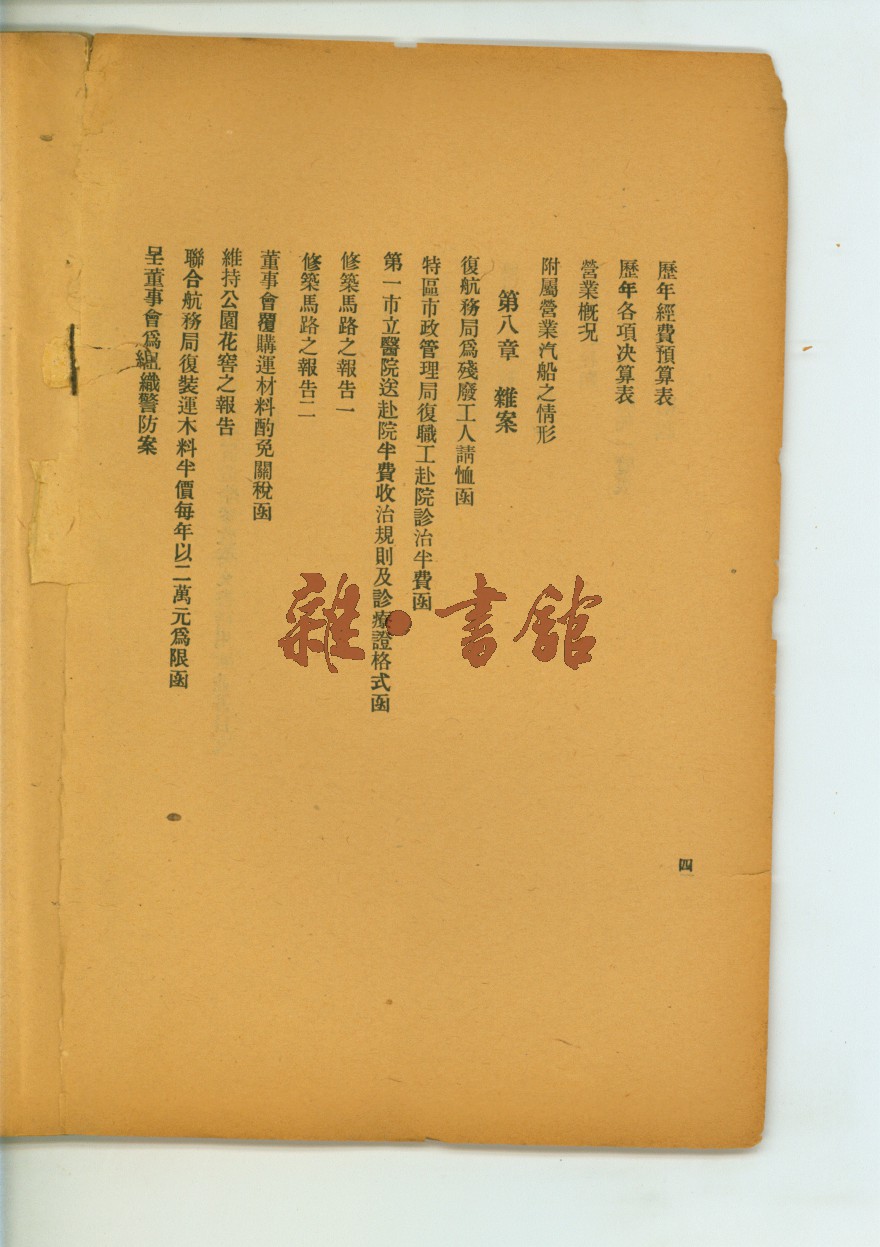 歷年經費預算表
歷年各項決算表
營業概況
附屬營業汽船之情形
第八章　雜案
復航務局爲殘廢工人請恤函
特區市政管理局復職工赴院診治半費函
第一市立醫院送赴院半費收治規則及診療證格式函
修築馬路之報告一
修築馬路之報告二
董事會覆購運材料酌免關稅函
維持公園花窖之報告
聯合航務局復裝運木料半價每年以二萬元爲限函
呈董事會爲組織警防案
四
雜·書館